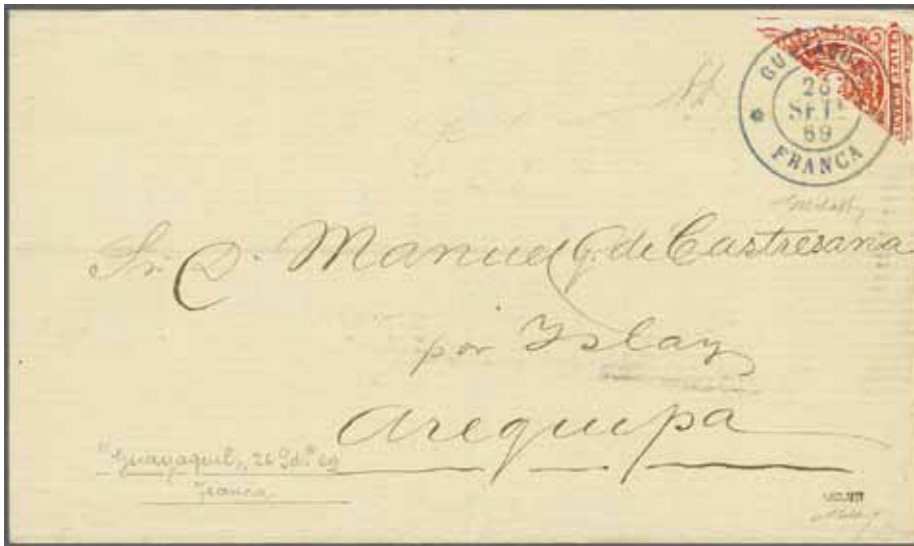 GUAYAQUIL
26
SETE
69
FRANCA
Sr. D. Manuel G. de Castresana
por Yslay
Arequipa
"Guayaquil" 26 69
Franca